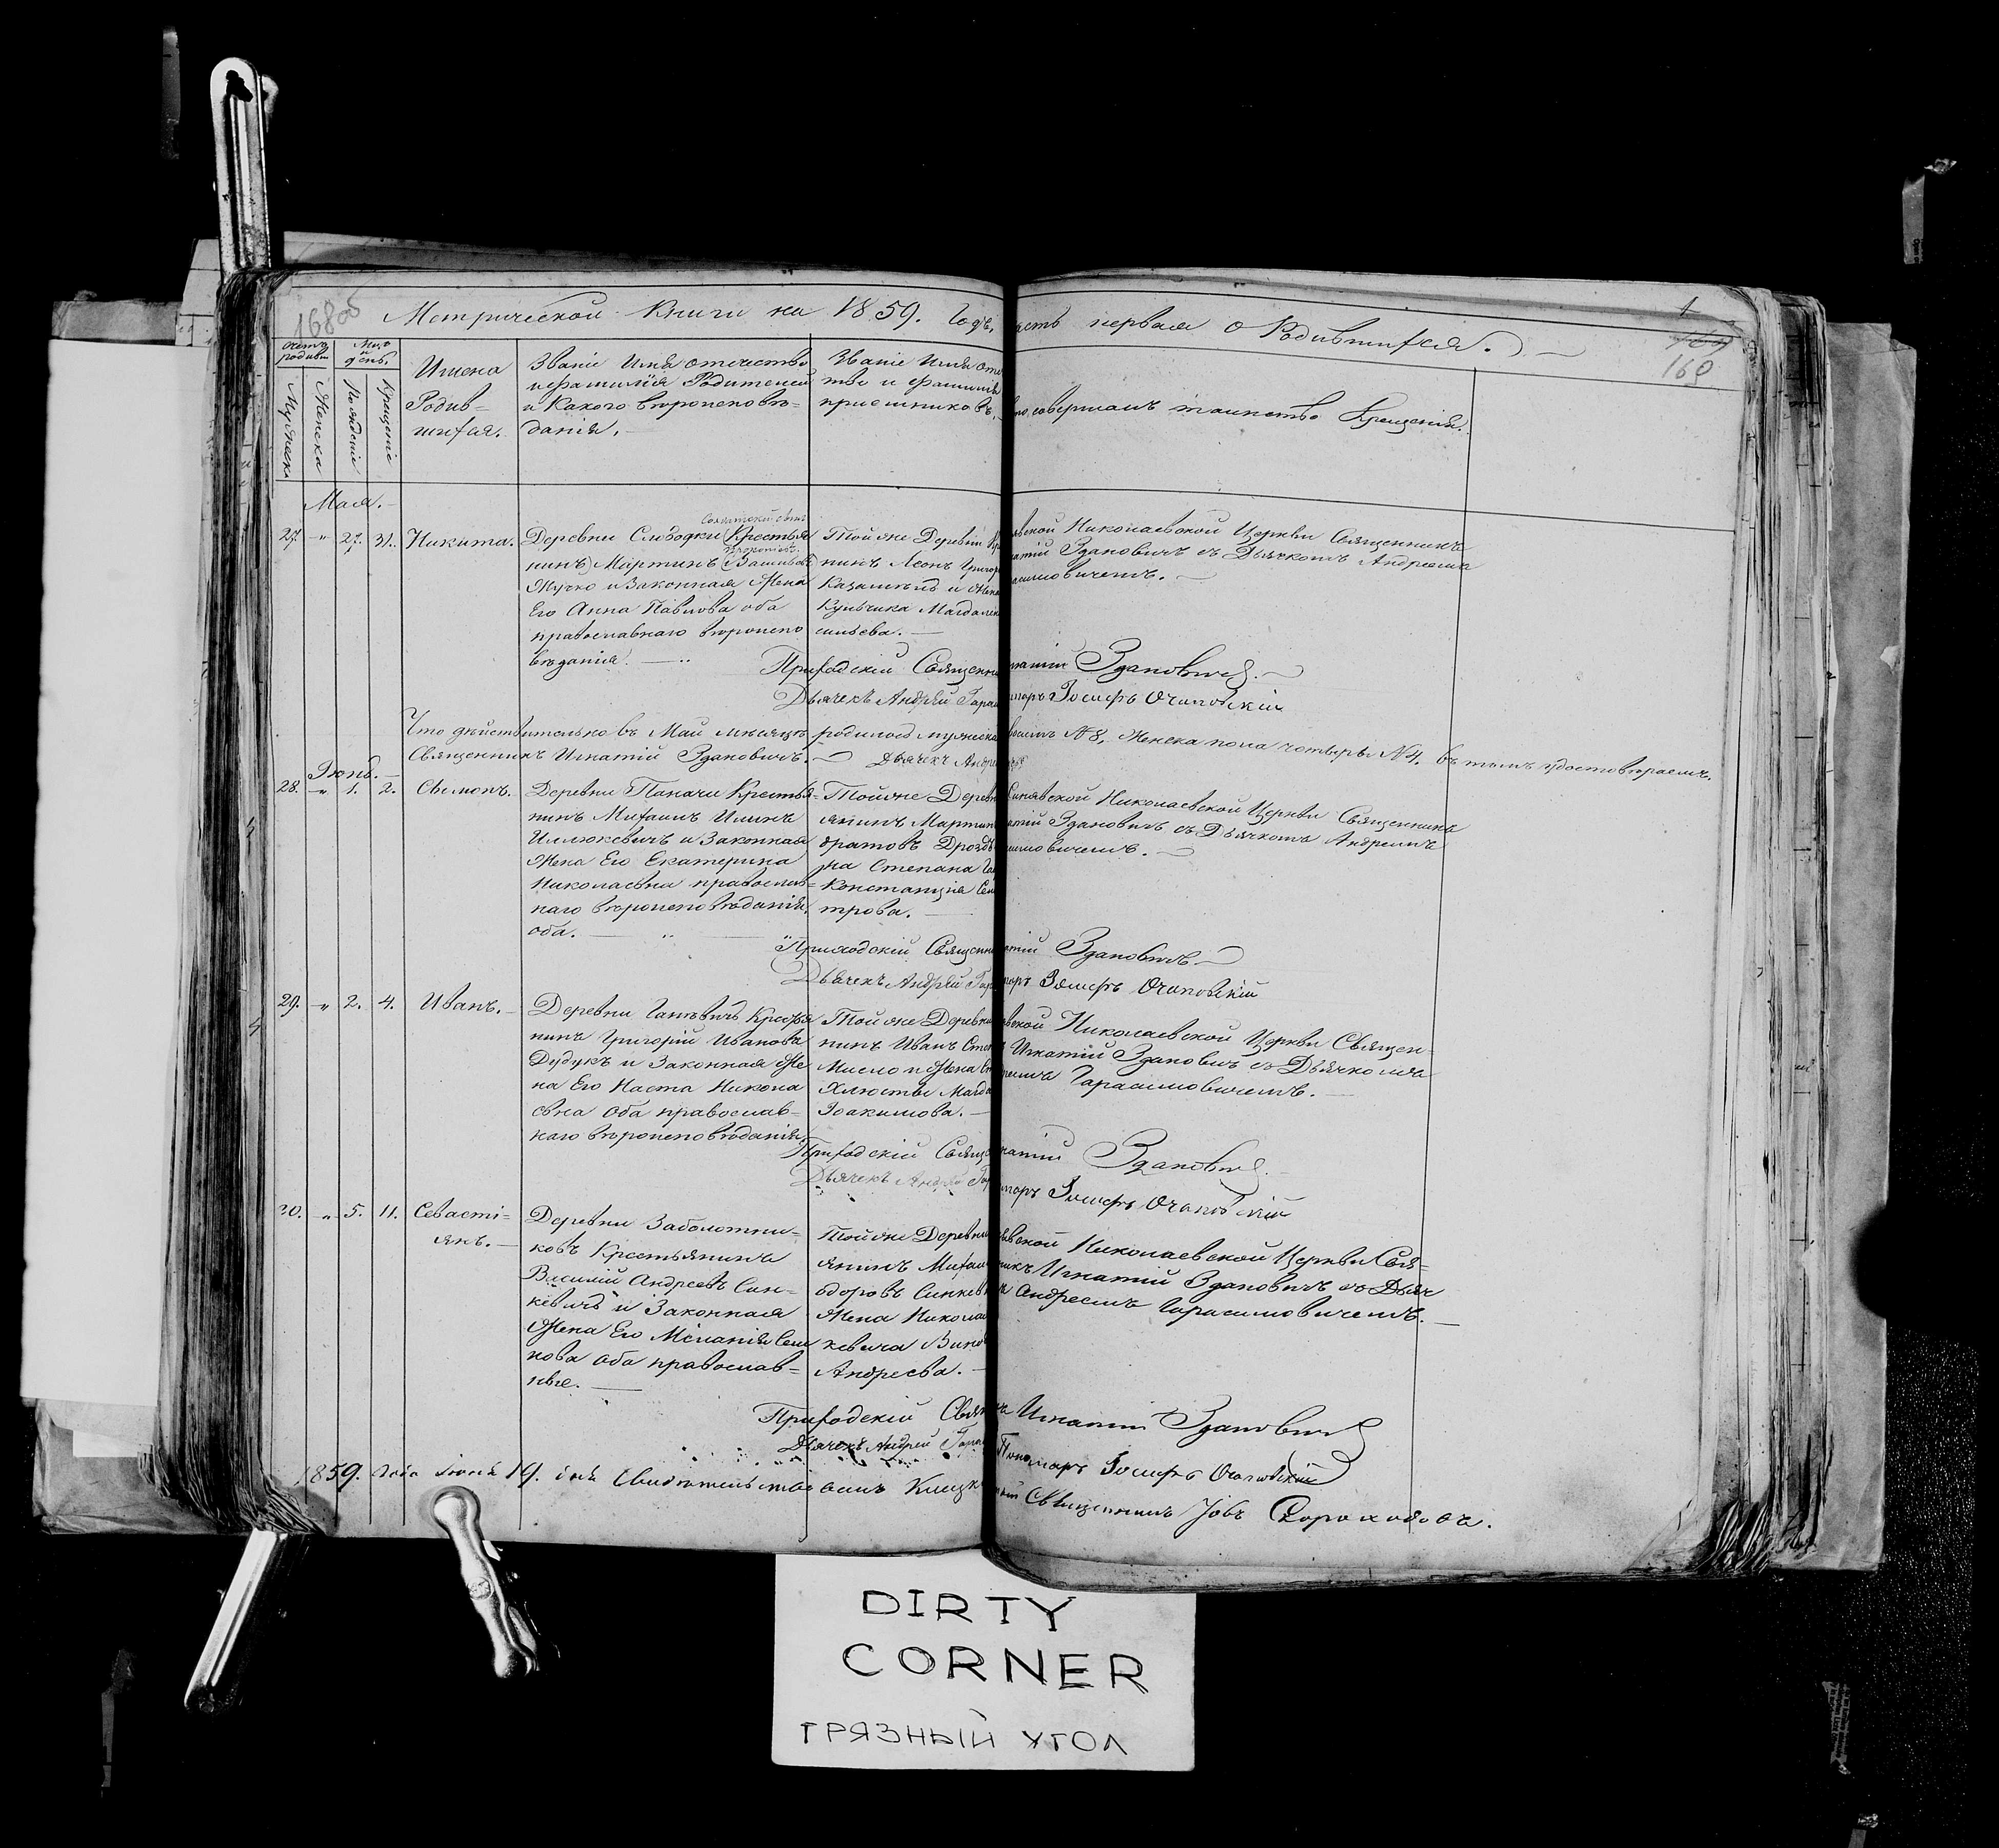 168об
Метрической Книги на 1859. Годъ, асть первая о Родившихся.
1
169
Счетъ родивш
Мѣс. и день.
Мужеска
Женска
Рожденіе
Крещеніе
Имена
Родив=
шихся.
Званіе Имя отечество
и фамилія Родителей
и Какого вѣроисповѣ=
данія.
Званіе Имя оте
тво и фамилія
приемниковъ,
то совершалъ таинство Крещенія.
Мая.
27. " 27. 31. Никита.
Солдатскій сынъ
Деревни Слободки (Крестья
нинъ) Мартинъ (Васильевъ)
Прокопіевъ
Мучко и Законная Жена
Его Анна Павлова оба
православнаго вѣроиспо
вѣданія.
Тойже Деревни Кр
нинъ Леонъ Григор
и Жена
Магдален
сильева.
вской Николаевской Церкви Священникъ
натій Здановичъ съ Дьячкомъ Андреемъ
асимовичемъ.
Приходскій Священни
натій Здановичъ.
Дьячекъ Андрей Гара
марь Іосифъ Очаповскій
Что дѣйствительно въ Май мѣсяцѣ родилось мужска восемь №8, Женска пола четыре №4. въ томъ удостовѣряемъ.
Священникъ Игнатій Здановичъ. Дьячекъ Андре
Іюнь.
28. " 1. 2. Симонъ.
Деревни Паначи Крестья=
нинъ Михаилъ Ильинъ
Иллюкевичъ и Законная
Жена Его Екатерина
Николаевна православ=
наго вѣроисповѣданія
оба.
Тойже Деревн
янинъ Мартин
дратовъ Дрозд
на Степана Га
Констанція Сем
трова.
Синявской Николаевской Церкви Священникъ
атій Здановичъ съ Дьячкомъ Андреемъ
имовичемъ.
Приходскій Священн
атій Здановичъ
Дьячекъ Андрей Гар
марь Іосифъ Очаповскій
29. " 2. 4. Иванъ.
Деревни Ганевичъ Крестья
нинъ Григорій Иванова
Дудукъ и Законная Же
на Его Наста Никола
евна оба православ=
наго вѣроисповѣданія.
Тойже Деревни
нинъ Иванъ Степ
Мисло и Жена Ст
Магда
Іоакимова.
вской Николаевской Церкви Священ=
Игнатій Здановичъ съ Дьячкомъ
реемъ Гарасимовичемъ.
Приходскій Священ
натій Здановичъ.
Дьячекъ Андрей Гар
марь Іосифъ Очаповскій
30. " 5. 11. Севасті=
янъ.
Деревни Заболотни=
ковъ Крестьянинъ
Василій Андреевъ Син=
кевичъ и Законная
Жена Его Меланія Сем
нова оба православ=
ные.
Тойже Деревни
янинъ Михаи
одоровъ Синкев
Жена Никола
кевича
Андреева.
вской Николаевской Церкви Свя=
никъ Игнатій Здановичъ съ Дьяч
Андреемъ Гарасимовичемъ.
Приходскій Священ
Игнатій Здановичъ
Дьячекъ Андрей Гара
Пономарь Іосифъ Очаповскій
1859. Года Іюня 19. дня Свидѣтельствовалъ Клецк Священникъ Іовъ Скороходовъ.
DIRTY
CORNER
ГРЯЗНЫЙ УГОЛ